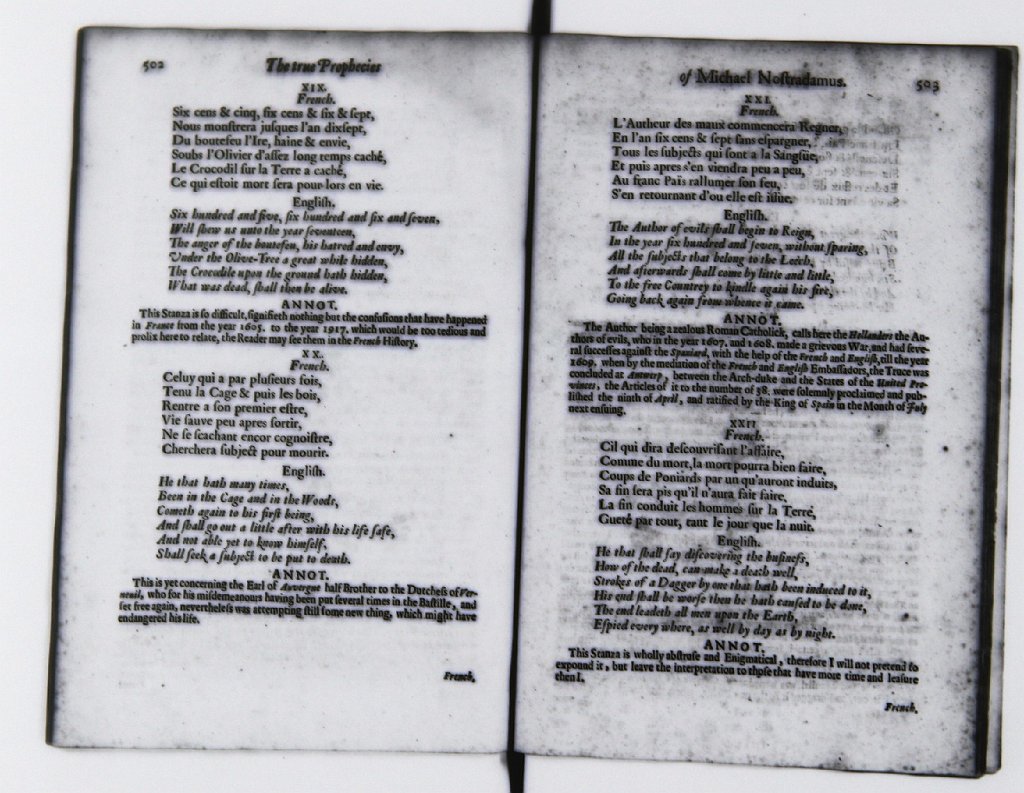 502 The true Prophecies
XIX.
French.
Six cens & cinq, six cens & six & sept,
Nous monstrera jusques l'an dixsept,
Du boutefeu l'Ire, haine & envie,
Soubs l'Olivier d'assez long temps caché,
Le Crocodil sur la Terre a caché,
Ce qui estoit mort sera pour lors en vie.
English.
Six hundred and five, six hundred and six and seven,
Will shew us unto the year seventeen,
The anger of the boutefeu, his hatred and envy,
Under the Olive-Tree a great while hidden,
The Crocodile upon the ground hath hidden,
What was dead, shall then be alive.
ANNOT.
This Stanza is so difficult, signifieth nothing but the confusions that have happened
in France from the year 1605. to the year 1917. which would be too tedious and
prolix here to relate, the Reader may see them in the French History.
XX.
French.
Celuy qui a par plusieurs fois,
Tenu la Cage & puis les bois,
Rentre a son premier estre,
Vie sauve peu apres sortir,
Ne se scachant encor cognoistre,
Cherchera subject pour mourir.
English.
He that hath many times,
Been in the Cage and in the Woods,
Cometh again to his first being,
And shall go out a little after with his life safe,
And not able yet to know himself,
Shall seek a subject to be put to death.
ANNOT.
This is yet concerning the Earl of Auvergne half Brother to the Dutchess of Ver-
neuil, who for his misdemeanours having been put several times in the Bastille, and
set free again, nevertheless was attempting still some new thing, which might have
endangered his life.
French,
of Michael Nostradamus. 503
XXI.
French.
L'Autheur des maux commencera Regner,
En l'an six cens & sept sans espargner,
Tous les subjects qui sont a la Sangsüe,
Et puis apres s'en viendra peu a peu,
Au franc Païs rallumer son feu,
S'en retournant d'ou elle est issue.
English.
The Author of evils shall begin to Reign,
In the year six hundred and seven, without sparing,
All the subjects that belong to the Leech,
And afterwards shall come by little and little,
To the free Countrey to kindle again his fire,
Going back again from whence it came.
ANNOT.
The Author being a zealous Roman Catholick, calls here the Hollanders the Au-
thors of evils, who in the year 1607. and 1608. made a grievous War, and had seve-
ral successes against the Spaniard, with the help of the French and English, till the year
1609. when by the mediation of the French and English Embassadors, the Truce was
concluded at Antwerp, between the Arch-duke and the States of the United Pro-
vinces, the Articles of it to the number of 38. were solemnly proclaimed and pub-
lished the ninth of April, and ratified by the King of Spain in the Month of July
next ensuing.
XXII
French.
Cil qui dira descouvrisant l'affaire,
Comme du mort, la mort pourra bien faire,
Coups de Poniards par un qu'auront induits,
Sa fin sera pis qu'il n'aura fait faire,
La fin conduit les hommes sur la Terre,
Gueté par tout, tant le jour que la nuit.
English.
He that shall say discovering the business,
How of the dead, can make a death well,
Strokes of a Dagger by one that hath been induced to it,
His end shall be worse then he hath caused to be done,
The end leadeth all men upon the Earth,
Espied every where, as well by day as by night.
ANNOT.
This Stanza is wholly abstruse and Enigmatical, therefore I will not pretend to
expound it, but leave the interpretation to those that have more time and leasure
then I.
French,